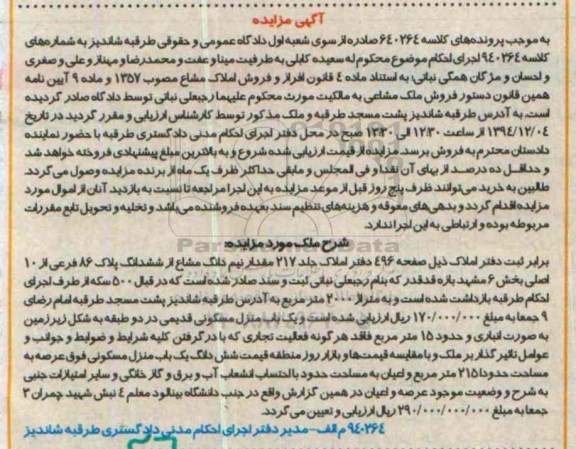 آگهی مزایده
به موجب پرونده‌های کلاسه ۶۴۰۲۶۴ صادره از سوی شعبه اول دادگاه عمومی و حقوقی طرقبه شاندیز به شماره‌های
کلاسه ۹۴۰۲۶۴ اجرای احکام موضوع محکوم له سعیده کابلی به طرفیت مینا و عفت و محمدرضا و مهناز و علی و صغری
و احسان و مژگان همگی نباتی، به استناد ماده ۴ قانون افراز و فروش املاک مشاع مصوب ۱۳۵۷ و ماده ۹ آیین نامه
همین قانون دستور فروش ملک مشاعی به مالکیت مورث محکوم علیهما رجبعلی نباتی توسط دادگاه صادر گردیده
است. به آدرس طرقبه شاندیز پشت مسجد طرقبه و ملک مذکور توسط کارشناس ارزیابی و مقرر گردید در تاریخ
۱۳۹۴/۱۲/۰۴ از ساعت ۱۲:۳۰ الی ۱۳:۳۰ صبح در محل دفتر اجرای احکام مدنی دادگستری طرقبه با حضور نماینده
دادستان محترم به فروش برسد. مزایده از قیمت ارزیابی شده شروع و به بالاترین مبلغ پیشنهادی فروخته خواهد شد
و حداقل ده درصد از بهای آن نقدا و فی المجلس و مابقی حداکثر ظرف یک ماه از برنده مزایده وصول می‌گردد.
طالبین به خرید می‌توانند ظرف پنج روز قبل از موعد مزایده به این اجرا مراجعه تا نسبت به بازدید آنان از اموال مورد
مزایده اقدام گردد و بدهی‌های معوقه و هزینه‌های تنظیم سند بعهده فروشنده می‌باشد و تخلیه و تحویل تابع مقررات
مربوطه بوده و ارتباطی به این اجرا ندارد.
شرح ملک مورد مزایده:
برابر ثبت دفتر املاک ذیل صفحه ۴۹۶ دفتر املاک جلد ۲۱۷ مقدار نیم دانگ مشاع از ششدانگ پلاک ۸۶ فرعی از ۱۰
اصلی بخش ۶ مشهد بازه قدقدر که بنام رجبعلی نباتی ثبت و سند صادر شده است که در قبال ۵۰۰ سکه از طرف اجرای
احکام طرقبه بازداشت شده است و به متراژ ۲۰۰۰ متر مربع به آدرس طرقبه شاندیز پشت مسجد طرقبه امام رضای
۹ جمعا به مبلغ ۱۷۰/۰۰۰/۰۰۰ ریال ارزیابی شده است و یک باب منزل مسکونی قدیمی در دو طبقه به شکل زیرزمین
به صورت انباری و حدود ۱۵ متر مربع فاقد هر گونه فعالیت تجاری که با در گرفتن کلیه شرایط و ضوابط و جوانب و
عوامل تاثیر گذار بر ملک و با مقایسه قیمت‌ها و بازار روز منطقه قیمت شش دانگ یک باب منزل مسکونی فوق عرصه به
مساحت حدودا ۲۱۵ متر مربع و اعیان به مساحت حدود با احتساب انشعاب آب و برق و گاز خانگی و سایر امتیازات جنبی
به شرح و وضعیت موجود عرصه و اعیان در همین گزارش واقع در جنب دانشگاه بینالود معلم ۴ نبش شهید چمران ۳
جمعا به مبلغ ۲۹۰/۰۰۰/۰۰۰/۰۰۰ ریال ارزیابی و تعیین می‌گردد.
۹۴۰۲۶۴ م الف- مدیر دفتر اجرای احکام مدنی دادگستری طرقبه شاندیز